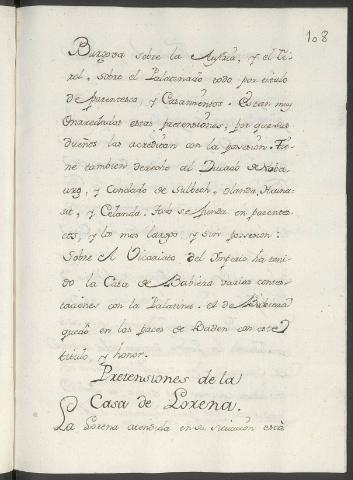 108
Burgovia sobre la Austria, y el Ti-
rol, sobre el Palatinado todo por titulo
de Parentesco, y Casamientos. Estan muy
enrredadas estas pretensiones; por que sus
dueños las acreditan con la posesion. Tie-
ne tambien derecho al Ducado de
y Condado de olanda, Haina-
ut, y Celanda. todo se funda en parentes-
cos, y los mas largos, y sin posesion:
Sobre el Vicariato del Imperio ha teni-
do la Casa de Babiera varias contes-
taciones con la Palatina. el de Babiera
quedó en las paces de Baden con este
titulo, y honor.
Pretensiones de la
Casa de Lorena.
La Lorena atendida en su situacion está